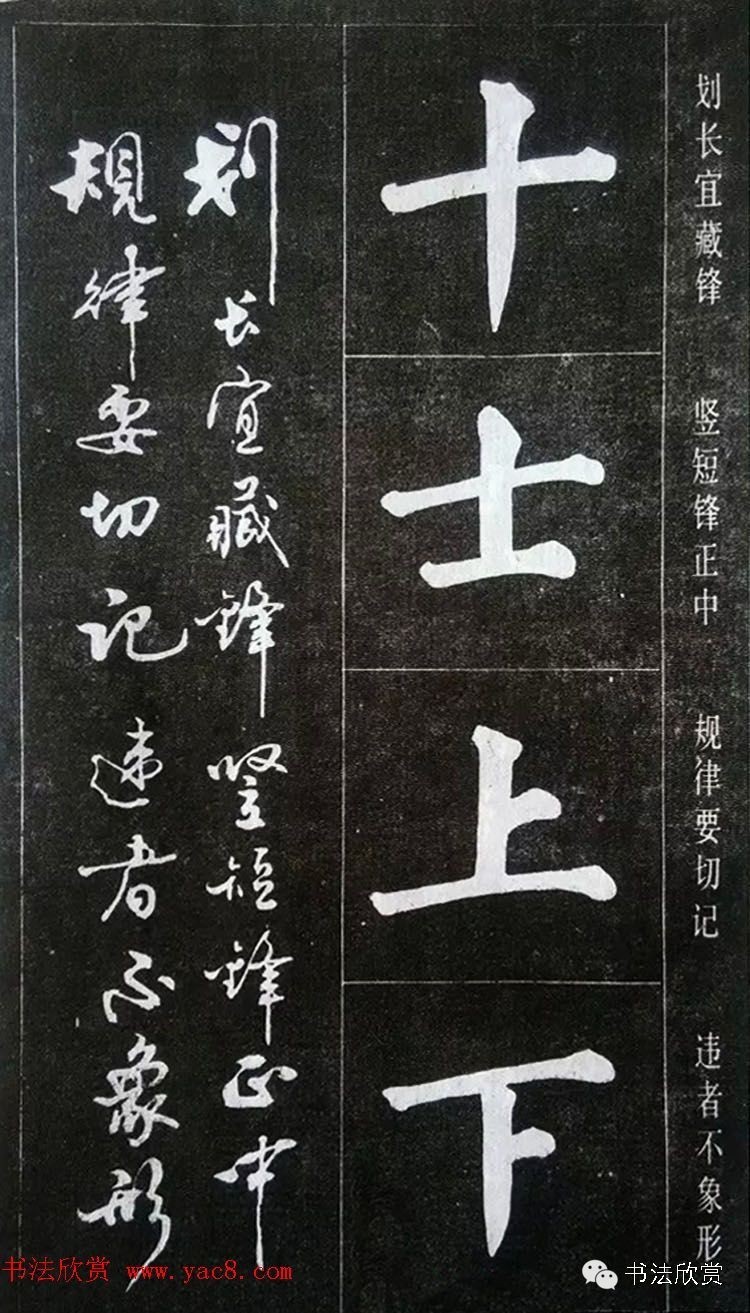 划长宜藏锋 竖短锋正中 规律要切记 违者不象形
十
士
上
下
划长宜藏锋竖短锋正中
规律要切记违者不象形
书法欣赏 www.yac8.com
书法欣赏